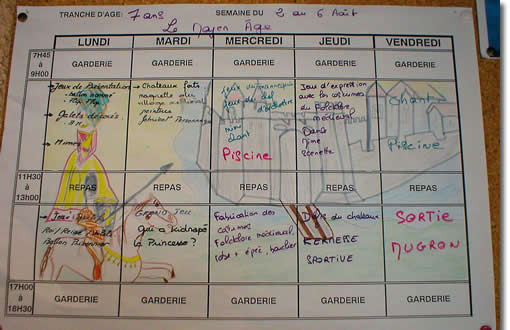 TRANCHE D'AGE: 7 ans SEMAINE DU 2 au 6 Août
Le Moyen Âge
LUNDI MARDI MERCREDI JEUDI VENDREDI
7H45 à 9H00
GARDERIE GARDERIE GARDERIE GARDERIE GARDERIE
Jeux de Présentation
Mime
Chateaux forts
médiéval
Piscine
Jeu d'expression
avec les costumes
du folklore
médiéval
Danse
Mime
Scenette
Chant
Piscine
11H30 à 13H00
REPAS REPAS REPAS REPAS REPAS
Ballon Prisonnier
Grand Jeu
Qui a kidnapé
la Princesse?
Fabrication des
costumes
Folklore médiéval
épée, bouclier
du chateau
KERMESSE
SPORTIVE
SORTIE
MUGRON
17H00 à 18H30
GARDERIE GARDERIE GARDERIE GARDERIE GARDERIE